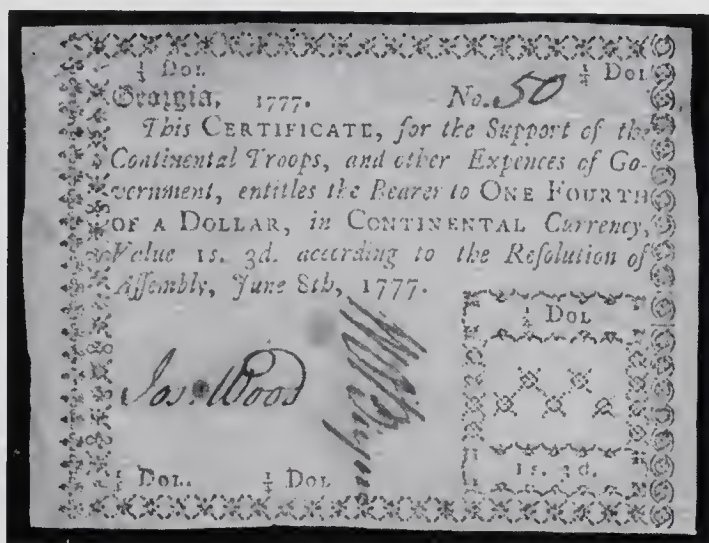 ¼ Dol ¼ Dol
Georgia, 1777. No. 50
This CERTIFICATE, for the Support of the
Continental Troops, and other Expences of Go-
vernment, entitles the Bearer to ONE FOURTH
OF A DOLLAR, in CONTINENTAL Currency,
Value 1s. 3d. according to the Reſolution of
Aſſembly, June 8th, 1777.
¼ Dol
Jos. Wood
1s. 3d.
¼ Dol. ¼ Dol